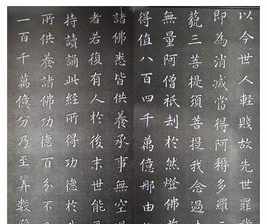 以今世人輕賤故先世罪業
即為消滅當得阿耨多羅三
藐三菩提須菩提我念過
無量阿僧祇劫於然燈佛
得值八百四千萬億那由
諸佛悉皆供養承事無空
者若復有人於後末世能
持讀誦此經所得功德於
所供養諸佛功德百分不
一百千萬億分乃至算數